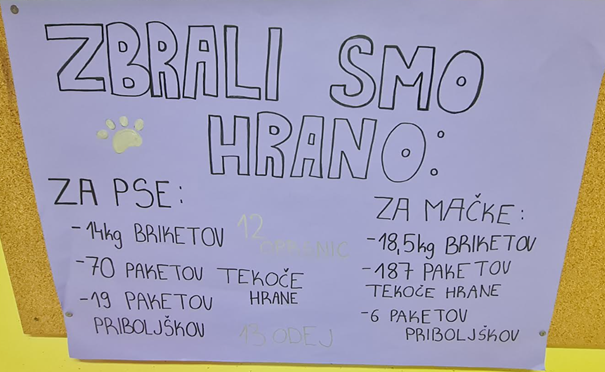 ZBRALI SMO
HRANO:
ZA PSE:
-14kg BRIKETOV
-70 PAKETOV TEKOČE
HRANE
-19 PAKETOV
PRIBOLJŠKOV
12
13 ODEJ
ZA MAČKE:
-18,5kg BRIKETOV
-187 PAKETOV
TEKOČE HRANE
-6 PAKETOV
PRIBOLJŠKOV